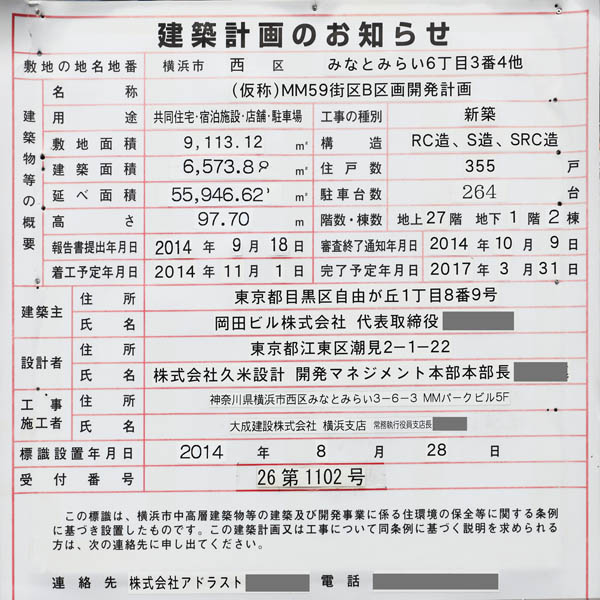 建築計画のお知らせ
敷地の地名地番 横浜市 西 区 みなとみらい6丁目3番4他
建築物等の概要
名 称 (仮称)MM59街区B区画開発計画
用 途 共同住宅・宿泊施設・店舗・駐車場 工事の種別 新築
敷地面積 9,113.12 ㎡ 構 造 RC造、S造、SRC造
建築面積 6,573.8 ㎡ 住戸数 355 戸
延べ面積 55,946.62 ㎡ 駐車台数 264 台
高 さ 97.70 m 階数・棟数 地上27階 地下1階2棟
報告書提出年月日 2014年9月18日 審査終了通知年月日 2014年10月9日
着工予定年月日 2014年11月1日 完了予定年月日 2017年3月31日
建築主 住 所 東京都目黒区自由が丘1丁目8番9号
氏 名 岡田ビル株式会社 代表取締役
設計者 住 所 東京都江東区潮見2-1-22
氏 名 株式会社久米設計 開発マネジメント本部本部長
工事施工者 住 所 神奈川県横浜市西区みなとみらい3-6-3 MMパークビル5F
氏 名 大成建設株式会社 横浜支店 常務執行役員支店長
標識設置年月日 2014 年 8 月 28 日
受付番号 26第1102号
この標識は、横浜市中高層建築物等の建築及び開発事業に係る住環境の保全等に関する条例
に基づき設置したものです。この建築計画又は工事について同条例に基づく説明を求められる
方は、次の連絡先に申し出てください。
連絡先 株式会社アドラスト 電話